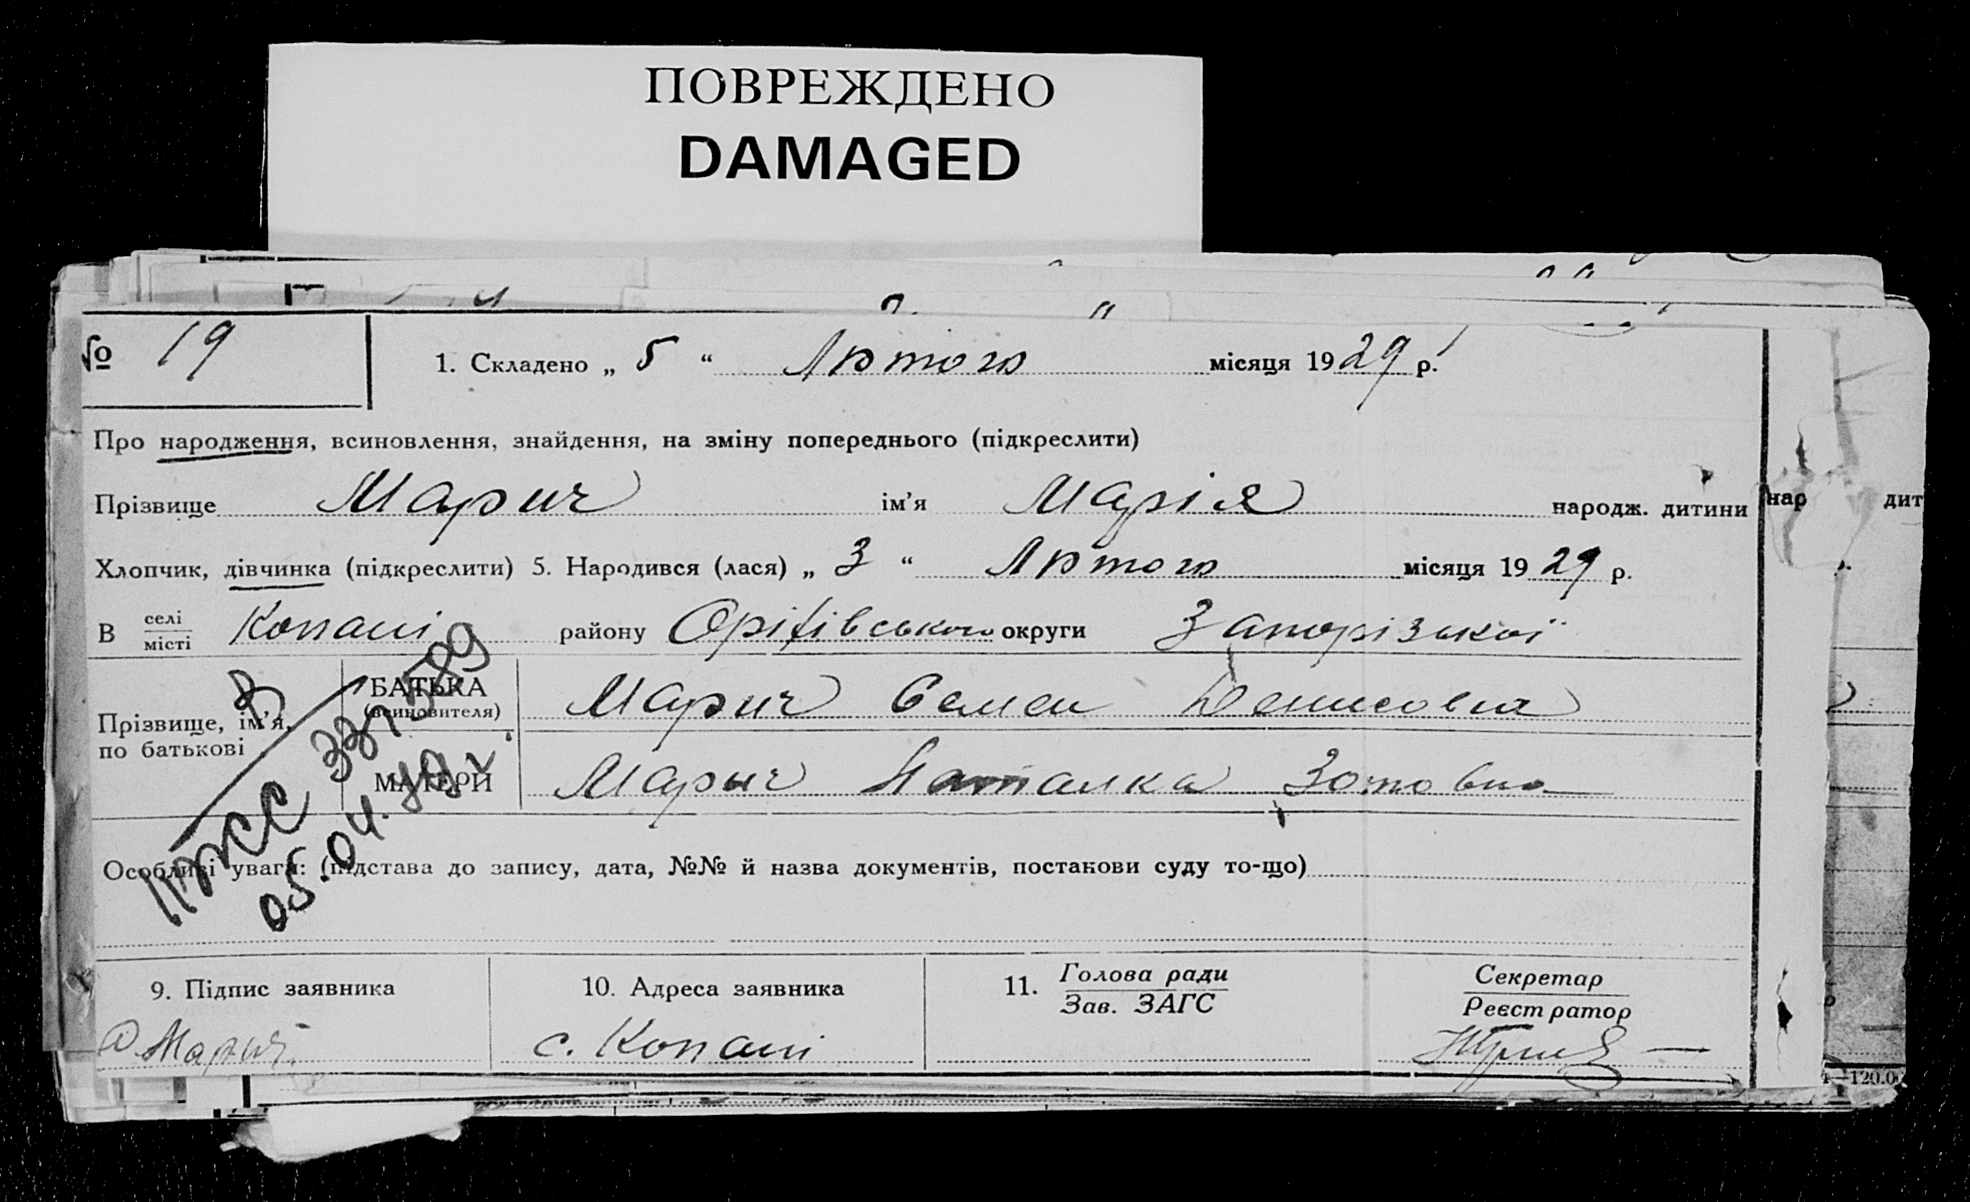 ПОВРЕЖДЕНО
DAMAGED
№ 19
1. Складено „ 5 “ Лютого місяця 1929 р.
Про народження, всиновлення, знайдення, на зміну попереднього (підкреслити)
Прізвище Марич ім’я Марія народж. дитини
нар дит
Хлопчик, дівчинка (підкреслити) 5. Народився (лася) „ 3 “ Лютого місяця 1929 р.
В селі місті Копані району Оріхівського округи Запорізької
Прізвище, ім’я, по батькові
БАТЬКА (всиновителя) Марич Семен Денисович
МАТЕРИ Марич Наталка Зотовна
Особливі уваги: (підстава до запису, дата, №№ й назва документів, постанови суду то-що)
05.04.
9. Підпис заявника
10. Адреса заявника
11. Голова ради
Зав. ЗАГС
Секретар
Реєстратор
Марич
с. Копані
120.0